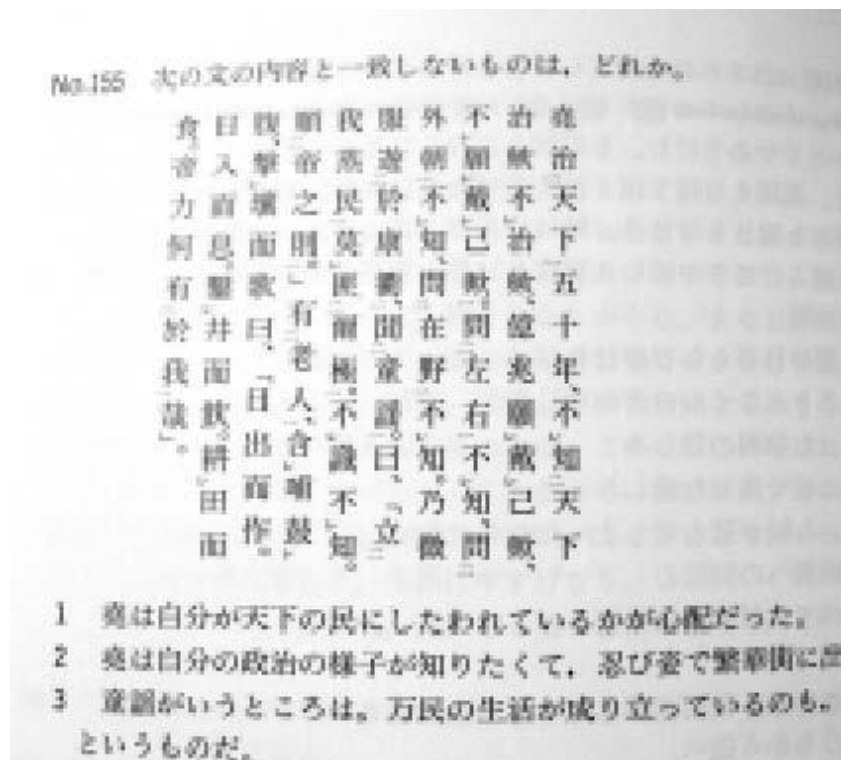 No.155 次の文の内容と一致しないものは，どれか。
堯治天下五十年、不知天下
治歟不治歟、億兆願戴己歟、
不願戴己歟。問左右不知、問
外朝不知、問在野不知。乃微
服遊於康衢、聞童謡。曰、「立
我烝民莫匪爾極。不識不知。
順帝之則。」有老人、含哺鼓
腹、撃壌而歌曰、「日出而作。
日入而息。鑿井而飲。耕田而
食。帝力何有於我哉」。
1 堯は自分が天下の民にしたわれているかが心配だった。
2 堯は自分の政治の様子が知りたくて，忍び姿で繁華街に出
3 童謡がいうところは。万民の生活が成り立っているのも，
というものだ。